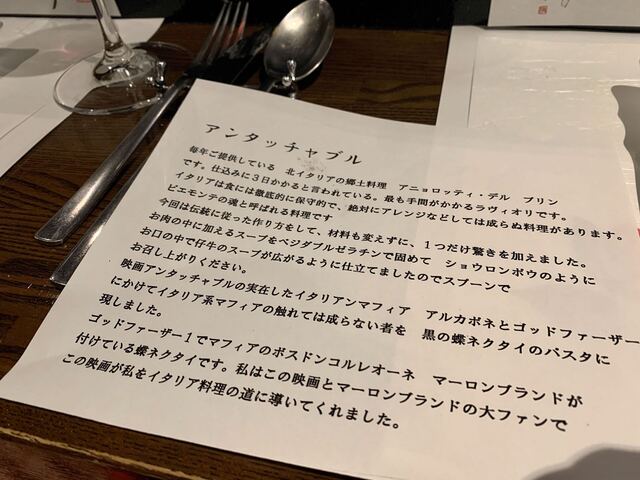 アンタッチャブル
毎年ご提供している　北イタリアの郷土料理　アニョロッティ・デル　プリン
です。仕込みに３日かかると言われている。最も手間がかかるラヴィオリです。
イタリアは食には徹底的に保守的で、絶対にアレンジなどしては成らぬ料理があります。
ピエモンテの魂と呼ばれる料理です
今回は伝統に従った作り方をして、材料も変えずに、１つだけ驚きを加えました。
お肉の中に加えるスープをベジタブルゼラチンで固めて　ショウロンポウのように
お口の中で仔牛のスープが広がるように仕立てましたのでスプーンで
お召し上がりください。
映画アンタッチャブルの実在したイタリアンマフィア　アルカポネとゴッドファーザー
にかけてイタリア系マフィアの触れては成らない者を　黒の蝶ネクタイのパスタに
現しました。
ゴッドファーザー１でマフィアのボスドンコルレオーネ　マーロンブランドが
付けている蝶ネクタイです。私はこの映画とマーロンブランドの大ファンで
この映画が私をイタリア料理の道に導いてくれました。